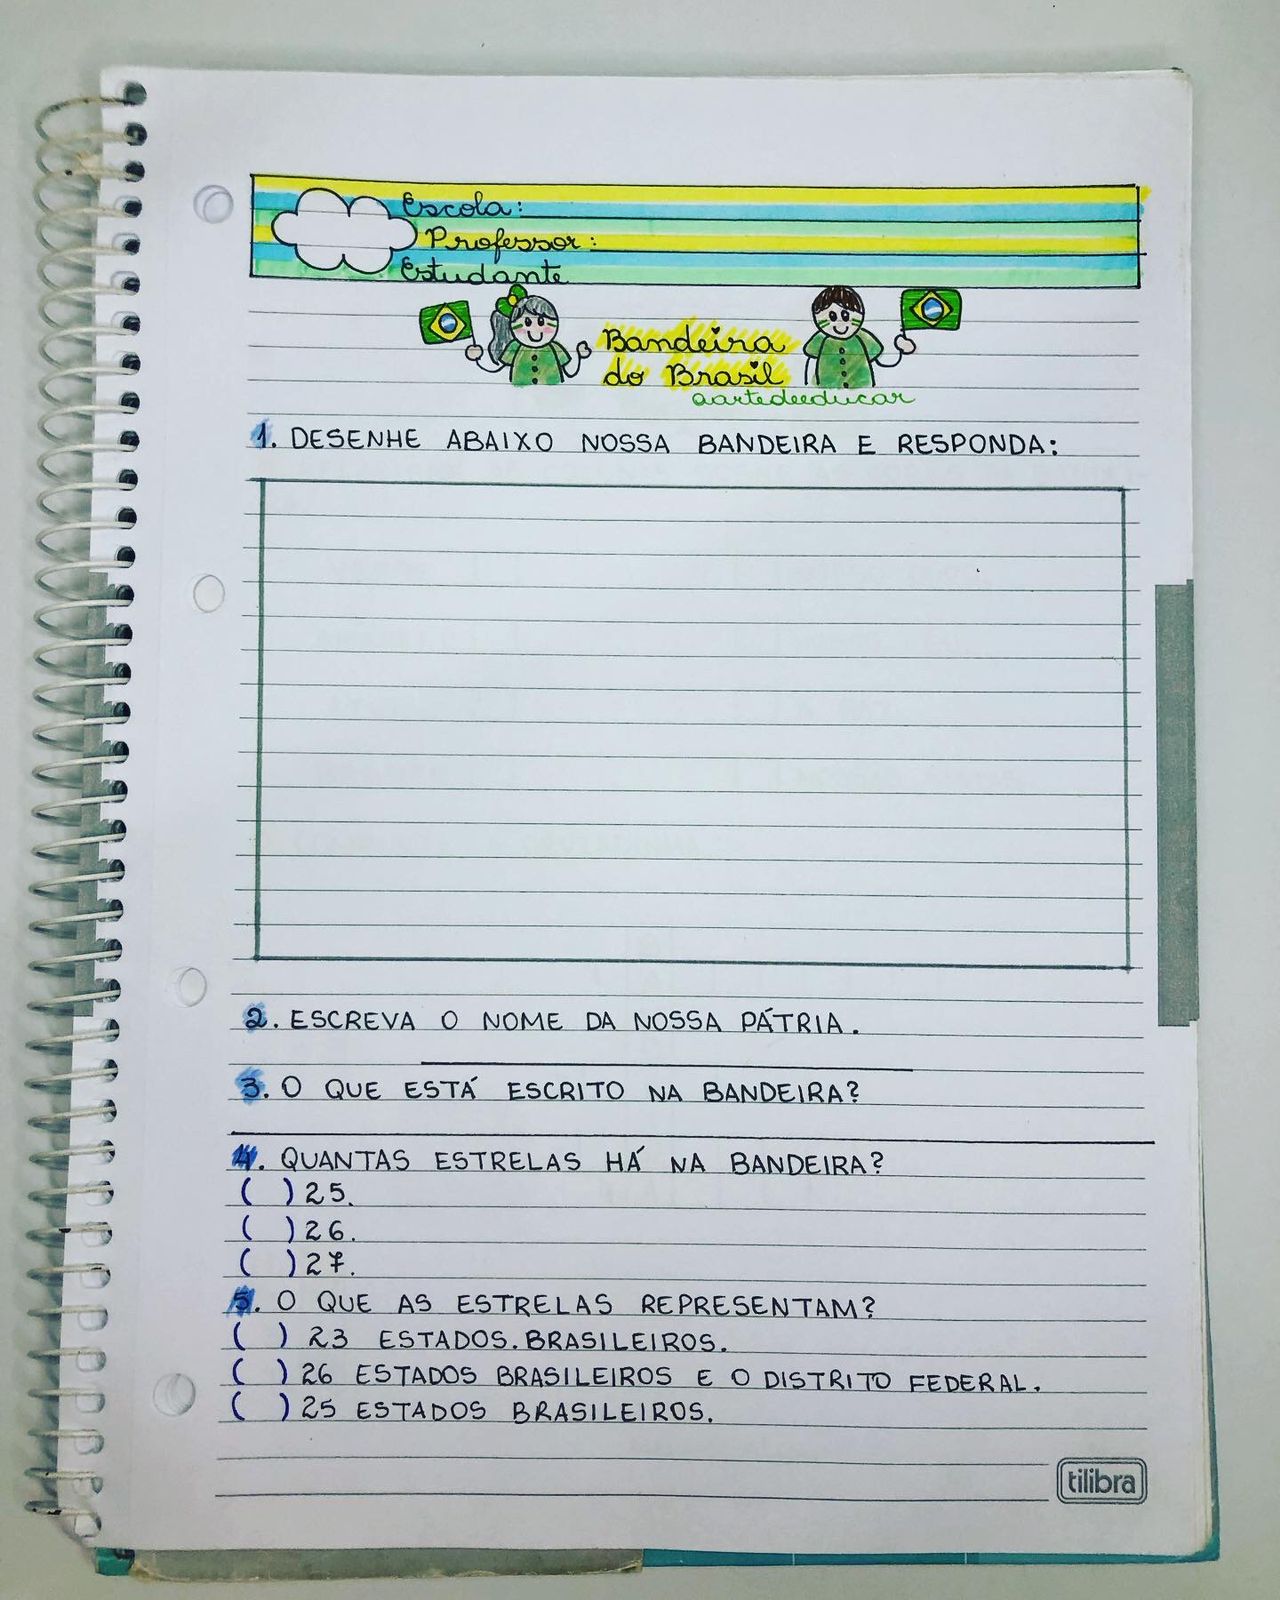 Escola:
Professor:
Estudante
Bandeira
do Brasil
aartedeeducar
1. DESENHE ABAIXO NOSSA BANDEIRA E RESPONDA:
2. ESCREVA O NOME DA NOSSA PÁTRIA.
3. O QUE ESTÁ ESCRITO NA BANDEIRA?
4. QUANTAS ESTRELAS HÁ NA BANDEIRA?
( ) 25.
( ) 26.
( ) 27.
5. O QUE AS ESTRELAS REPRESENTAM?
( ) 23 ESTADOS.BRASILEIROS.
( ) 26 ESTADOS BRASILEIROS E O DISTRITO FEDERAL.
( ) 25 ESTADOS BRASILEIROS.
tilibra